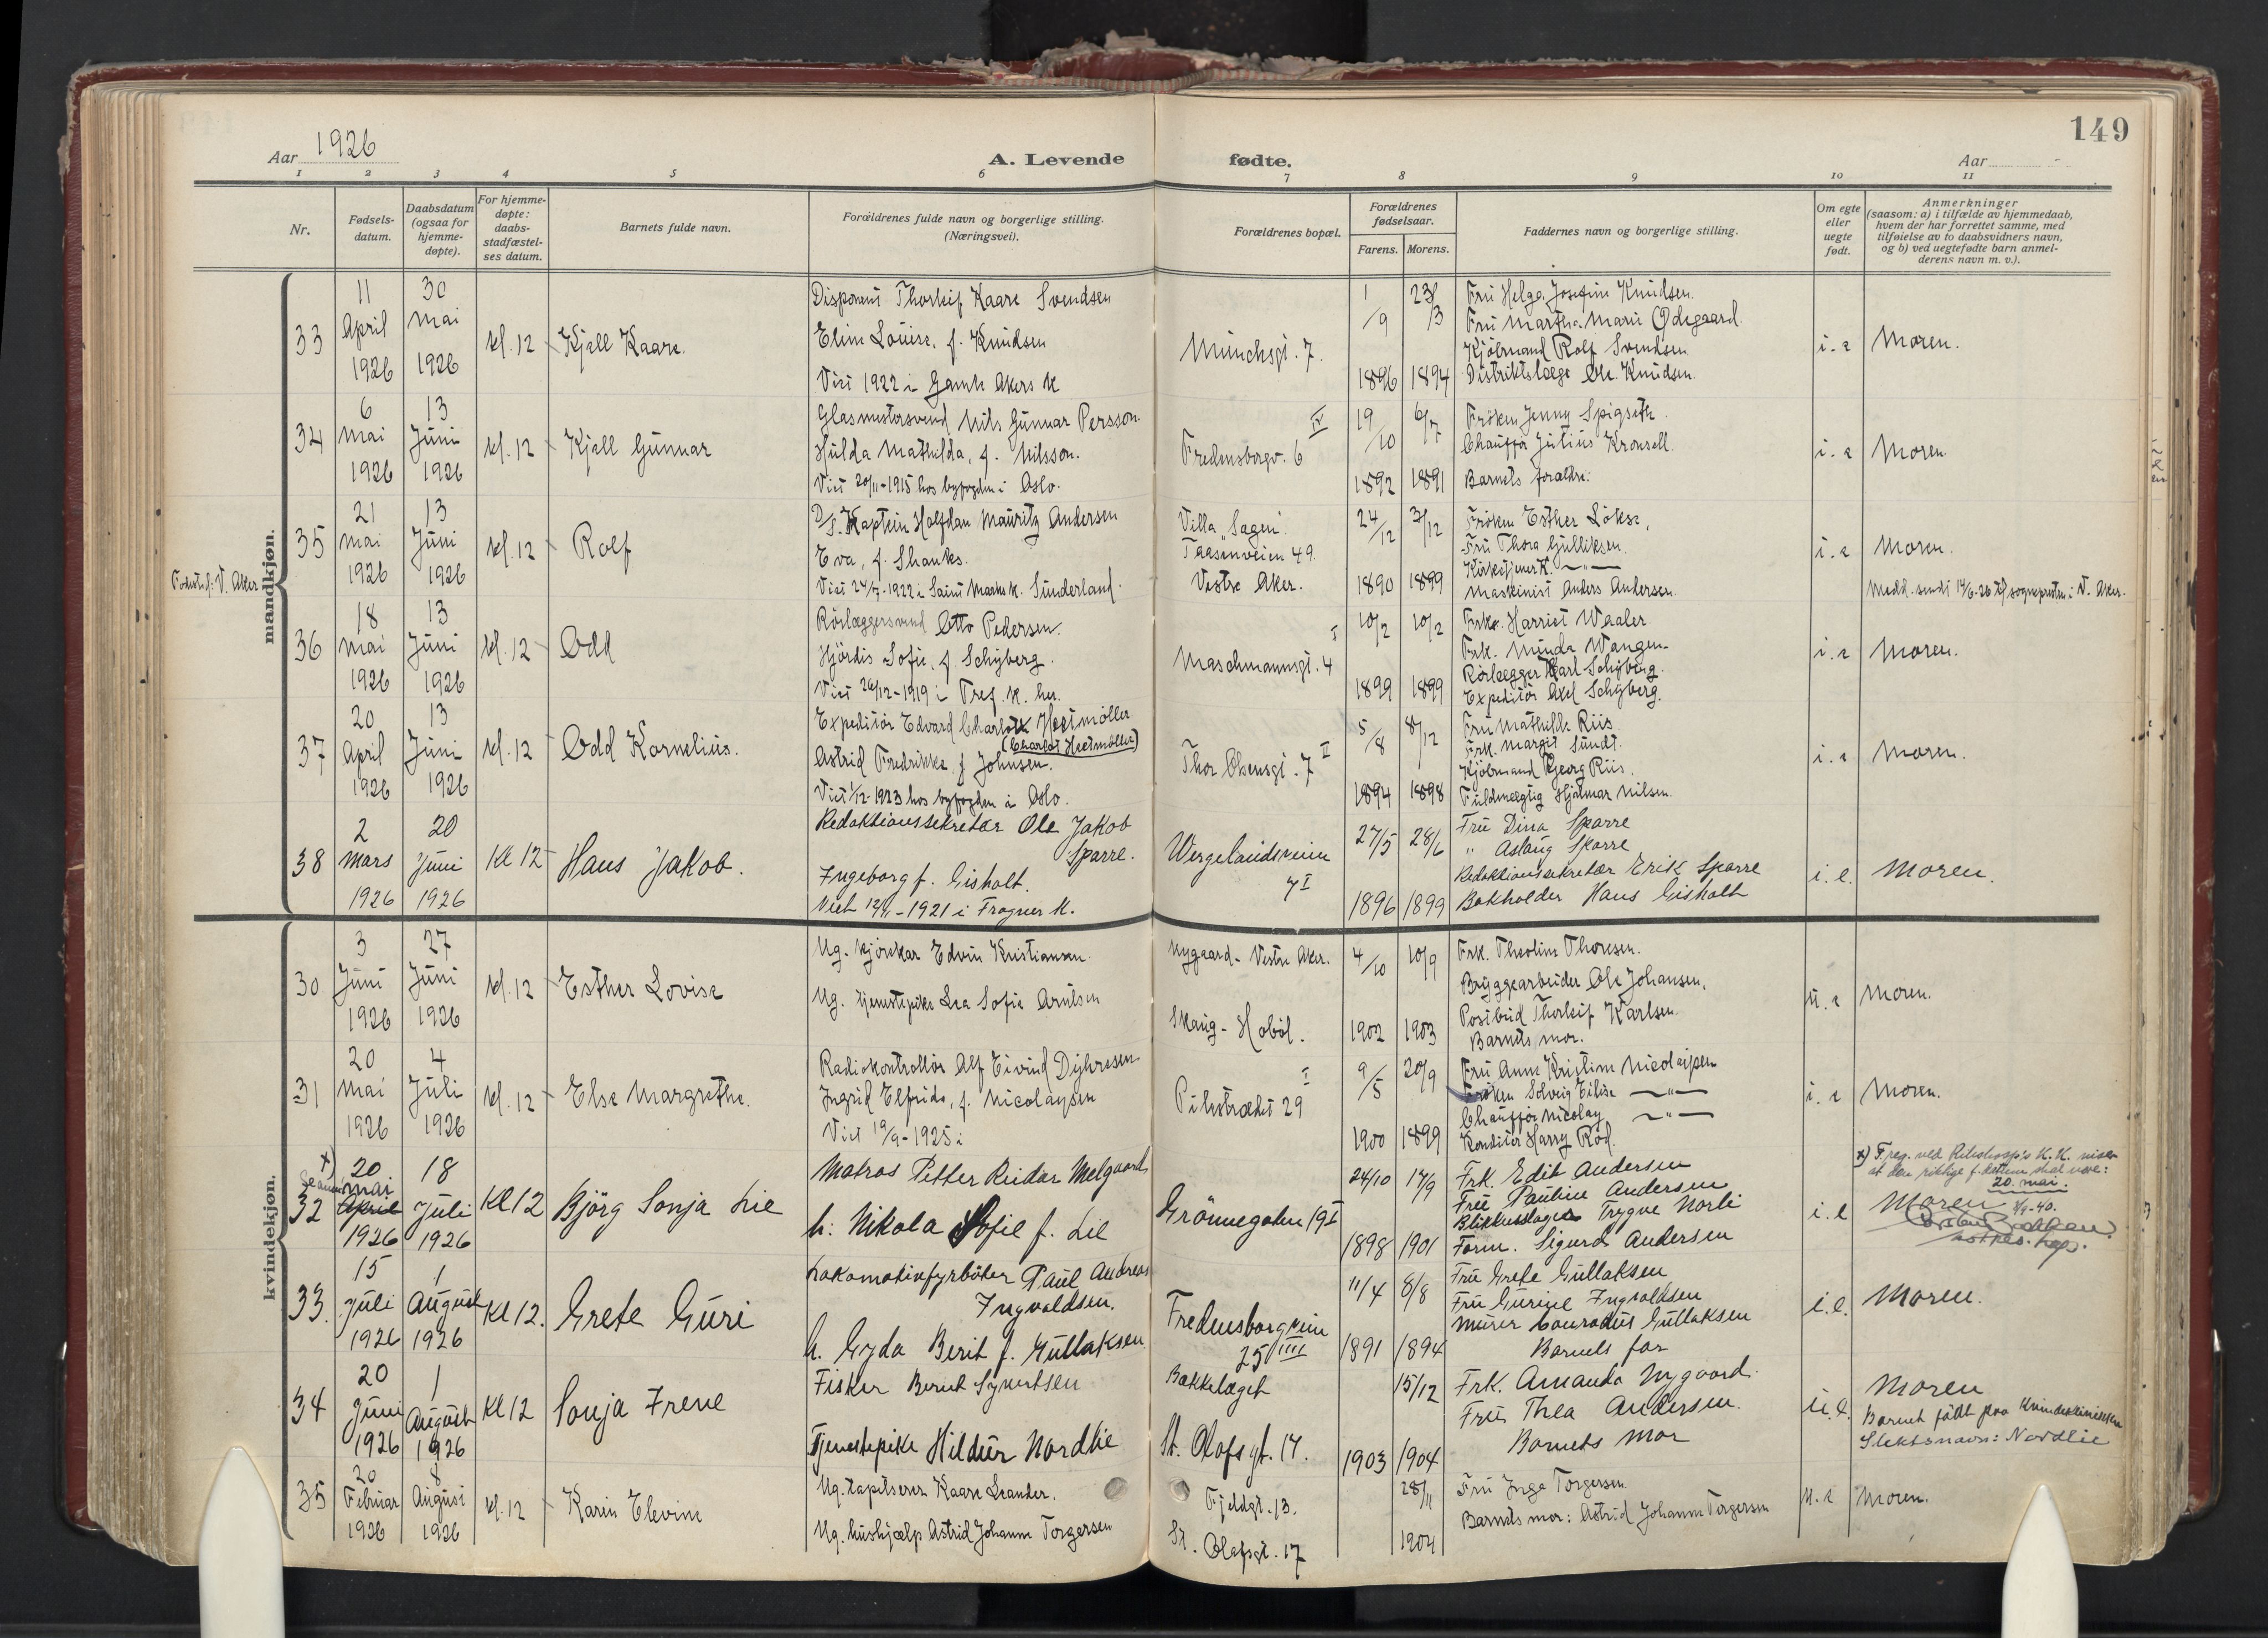 149
Aar 1926
A. Levende fødte.
Aar
1 2 3 4 5 6 7 8 9 10 11
Nr.
Fødsels-
datum.
Daabsdatum
(ogsaa for
hjemme-
døpte).
For hjemme-
døpte:
daabs-
stadfæstel-
ses datum.
Barnets fulde navn.
Forældrenes fulde navn og borgerlige stilling.
(Næringsvei).
Forældrenes bopæl.
Forældrenes
fødselsaar.
Farens. Morens.
Faddernes navn og borgerlige stilling.
Om egte
eller
uegte
født.
Anmerkninger
(saasom: a) i tilfælde av hjemmedaab,
hvem der har forrettet samme, med
tilføielse av to daabsvidners navn,
og b) ved uegtefødte barn anmel-
derens navn m. v.).
mandkjøn.
33
11 April 1926
30 Mai 1926
kl. 12
Kjell Kaare.
Disponent Thorleif Kaare Svendsen
Elim Louise, f. Knudsen
Viet 1922 i Gamle Akers K
Munchsgt. 7.
1/9 1896
23/3 1894
Fru Helga Josefine Knudsen.
Fru Martha Marie Ødegaard.
Kjøbmand Rolf Svendsen
Distriktslæge Ole Knudsen.
i. e
Moren.
34
6 Mai 1926
13 Juni 1926
kl. 12
Kjell Gunnar
Glasmestersvend Nils Gunnar Persson
Hulda Mathilda, f. Nilsson.
Viet 20/11-1915 hos byfogden i Oslo.
Fredensborgv. 6 IV
19/10 1892
6/7 1891
Frøken Jenny Spigseth.
Chauffør Julius Kronsell.
Barnets forældre.
i. e
Moren.
35
21 Mai 1926
13 Juni 1926
kl. 12
Rolf
D/S. Kaptein Halfdan Mauritz Andersen
Eva, f. Shanks.
Viet 24/7-1922 i Saint Marks k. Sunderland.
Villa "Sagen".
Taasenveien 49.
Vestre Aker.
24/12 1890
3/12 1899
Frøken Esther Løkse,
Fru Thora Gulliksen.
Kirketjener K. — " —
Maskinist Anders Andersen.
i. e
Moren.
Medd. sendt 14/6-26 til sognepresten i V. Aker.
36
18 Mai 1926
13 Juni 1926
kl. 12
Odd
Rørlæggersvend Otto Pedersen.
Hjørdis Sofie, f. Schyberg.
Viet 26/12-1919 i Tref. K. her.
Maschmannsgt. 4 I
10/2 1899
10/2 1899
Frk. Harriet Waaler
Frk. Minda Wangen
Rørlægger Karl Schyberg.
Expeditør Axel Schyberg.
i. e
Moren.
37
20 April 1926
13 Juni 1926
kl. 12
Odd Kornelius.
Expeditør Edvard Charlott Heetmøller
(Charlot Heetmøller)
Astrid Fredrikke f. Johnsen.
Viet 1/12-1923 hos byfogden i Oslo.
Thor Olsensgt. 7 II
5/8 1894
8/12 1898
Fru Mathilde Riis
Frk. Margit Sundt.
Kjøbmand Georg Riis.
Fuldmægtig Hjalmar Nilsen.
i. e
Moren.
38
2 Mars 1926
20 Juni 1926
Kl 12
Hans Jakob.
Redaktionssekretær Ole Jakob
Sparre.
Ingeborg f. Gisholt.
Viet 12/11-1921 i Frogner K.
Wergelandsveien
7 I
27/5 1896
28/6 1899
Fru Dina Sparre
" Aslaug Sparre
Redaktionssekretær Erik Sparre
Bokholder Hans Gisholt
i. e.
Moren.
kvindekjøn.
30
3 Juni 1926
27 Juni 1926
kl. 12
Esther Lovise
Ug. kjørekar Edvin Kristiansen.
Ug. tjenestepike Lea Sofie Arntsen
Nygaard - Vestre Aker.
Skaug - Hobøl.
4/10 1902
10/9 1903
Frk. Theoline Thoresen.
Bryggearbeider Ole Johansen.
Postbud Thorleif Karlsen.
Barnets mor.
u. e
Moren.
31
20 Mai 1926
4 Juli 1926
kl. 12
Else Margrethe.
Radiokontrollør Alf Eivind Dyhresen
Ingrid Elfrida, f. Nicolaysen
Viet 19/9-1925 i
Pilestrædet 29 I
9/5 1900
20/9 1899
Fru Anne Kristine Nicolaysen
Frøken Solveig Elise — " —
Chauffør Nicolay — " —
Konditor Harry Rød.
i. e
Moren.
x) Se anm
32
20 mai April 1926
18 Juli 1926
Kl 12
Bjørg Sonja Lie
Matros Petter Reidar Melgaard
h: Nikola Sofie f. Lie
Grønnegaten 19 I
24/10 1898
17/9 1901
Frk. Edit Andersen
Fru Pauline Andersen
Blikkenslager Trygve Norli
Form. Sigurd Andersen
i. e
x) F.reg. ved Rikshosp's K.K. viser
at den riktige f.datum skal være:
20. mai.
Moren
33.
15 Juli 1926
1 August 1926
Kl 12.
Grete Guri
Lokomotivfyrbøter Paul Andreas
Ingvaldsen.
h. Gyda Berit f. Gullaksen
Fredensborgveien
25 IIII
11/4 1891
8/8 1894
Fru Grete Gullaksen
Fru Gurine Ingvaldsen
Murer Conradus Gullaksen
Barnets far
i. e.
Moren.
34
20 Juni 1926
1 August 1926
Kl 12
Sonja Irene
Fisker Bernt Syvertsen
Tjenestepike Hildur Nordlie
Bakkelaget
St. Olafs gt. 17.
1903
15/12 1904
Frk. Amanda Nygaard.
Fru Thea Andersen.
Barnets mor
u. e.
Moren
Barnet født paa Kvindeklinikken
Slektsnavn: Nordlie
35
20 Februar 1926
8 August 1926
kl. 12
Karin Elevine
Ug. tapetserer Kaare Leander.
Ug. hushjælp Astrid Johanne Torgersen
Fjeldgt. 13.
St. Olafsgt. 17
28/11 1904
Fru Inga Torgersen.
Barnets mor: Astrid Johanne Torgersen
u. e
Moren.